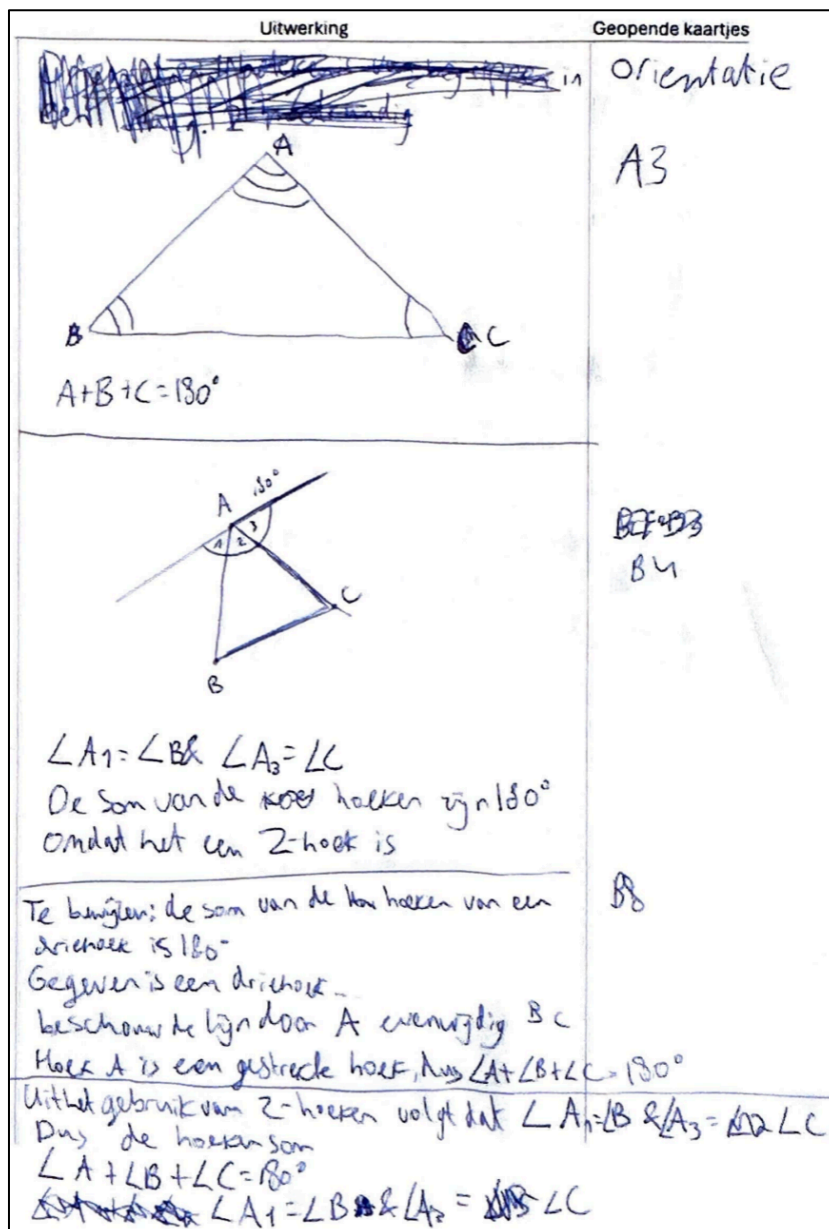 Uitwerking
Geopende kaartjes
in
Orientatie
A3
A
B
C
A+B+C=180°
A
180°
1 2 3
C
B
B4
∠A1=∠B& ∠A3=∠C
De som van de hoeken zijn 180°
Omdat het een Z-hoek is
B8
Te bewijzen: de som van de hoeken van een
driehoek is 180°
Gegeven is een driehoek.
beschouw de lijn door A evenwijdig BC
Hoek A is een gestrekte hoek, dus ∠A+∠B+∠C=180°
Uit het gebruik van Z-hoeken volgt dat ∠A1=∠B &∠A3= ∠C
Dus de hoekensom
∠A+∠B+∠C=180°
∠A1=∠B & ∠A3= ∠C